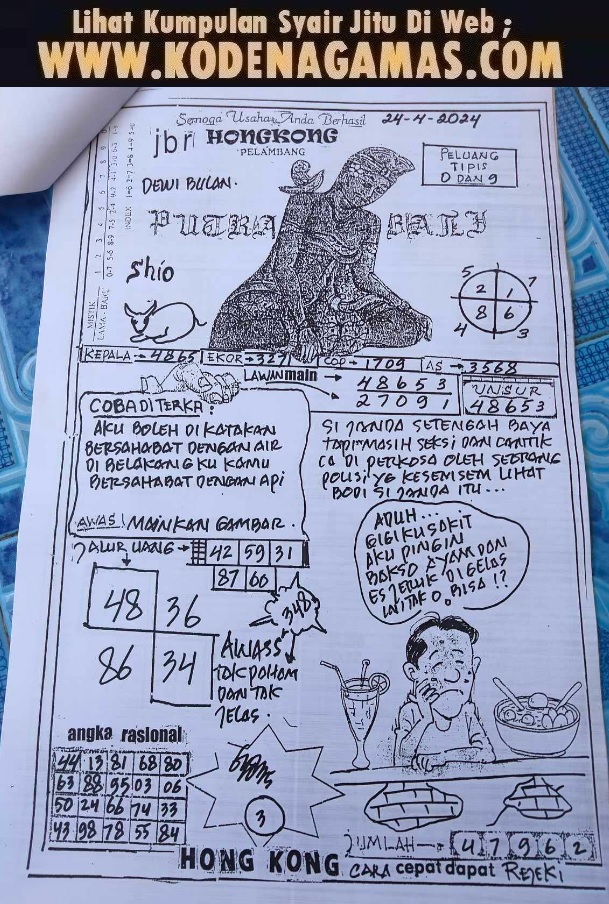 Lihat Kumpulan Syair Jitu Di Web ;
WWW.KODENAGAMAS.COM
Semoga Usaha Anda Berhasil 24-4-2024
jbr HONGKONG
PELAMBANG
PELUANG
TIPIS
0 DAN 9
DEWI BULAN.
PUTRA BALI
Shio
5 7
2 1
8 6
4 3
KEPALA → 4865 EKOR → 3271 COP → 1709 AS → 3568
LAWAN main → 48653
27091
UNSUR
48653
COBA DI TERKA :
AKU BOLEH DI KATAKAN
BERSAHABAT DENGAN AIR
DI BELAKANG KU KAMU
BERSAHABAT DENGAN API
AWAS! MAINKAN GAMBAR.
SI JANDA SETENGAH BAYA
TAPI MASIH SEKSI DAN CANTIK
CA DI PERKOSA OLEH SEORANG
POLISI YG KESEMSEM LIHAT
BODI SI JANDA ITU...
ADUH...
GIGI KU SAKIT
AKU PINGIN
BAKSO AYAM DAN
ES JERUK DI GELAS
BISA !?
JALUR UANG → 42 59 31
87 60
348
48 36
86 34
AWASS
TAK PAHAM
DAN TAK
JELAS.
angka rasional
44 13 81 68 80
63 88 95 03 06
50 24 66 74 33
43 98 78 55 84
3
JUMLAH → 4 7 9 6 2
HONG KONG CARA cepat dapat REJEKI